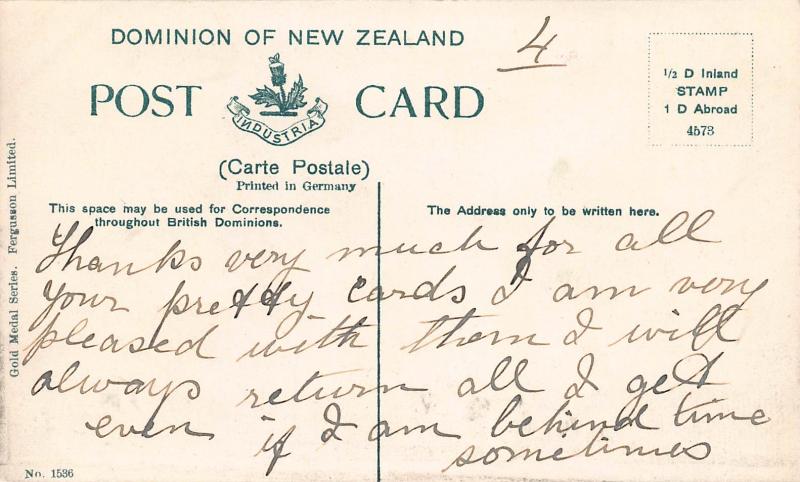 DOMINION OF NEW ZEALAND
4
POST CARD
INDUSTRIA
(Carte Postale)
Printed in Germany
1/2 D Inland
STAMP
1 D Abroad
4573
This space may be used for Correspondence
throughout British Dominions.
The Address only to be written here.
Gold Medal Series. Fergusson Limited.
Thanks very much for all
your pretty cards I am very
pleased with them I will
always return all I get
even if I am behind time
sometimes
No. 1536